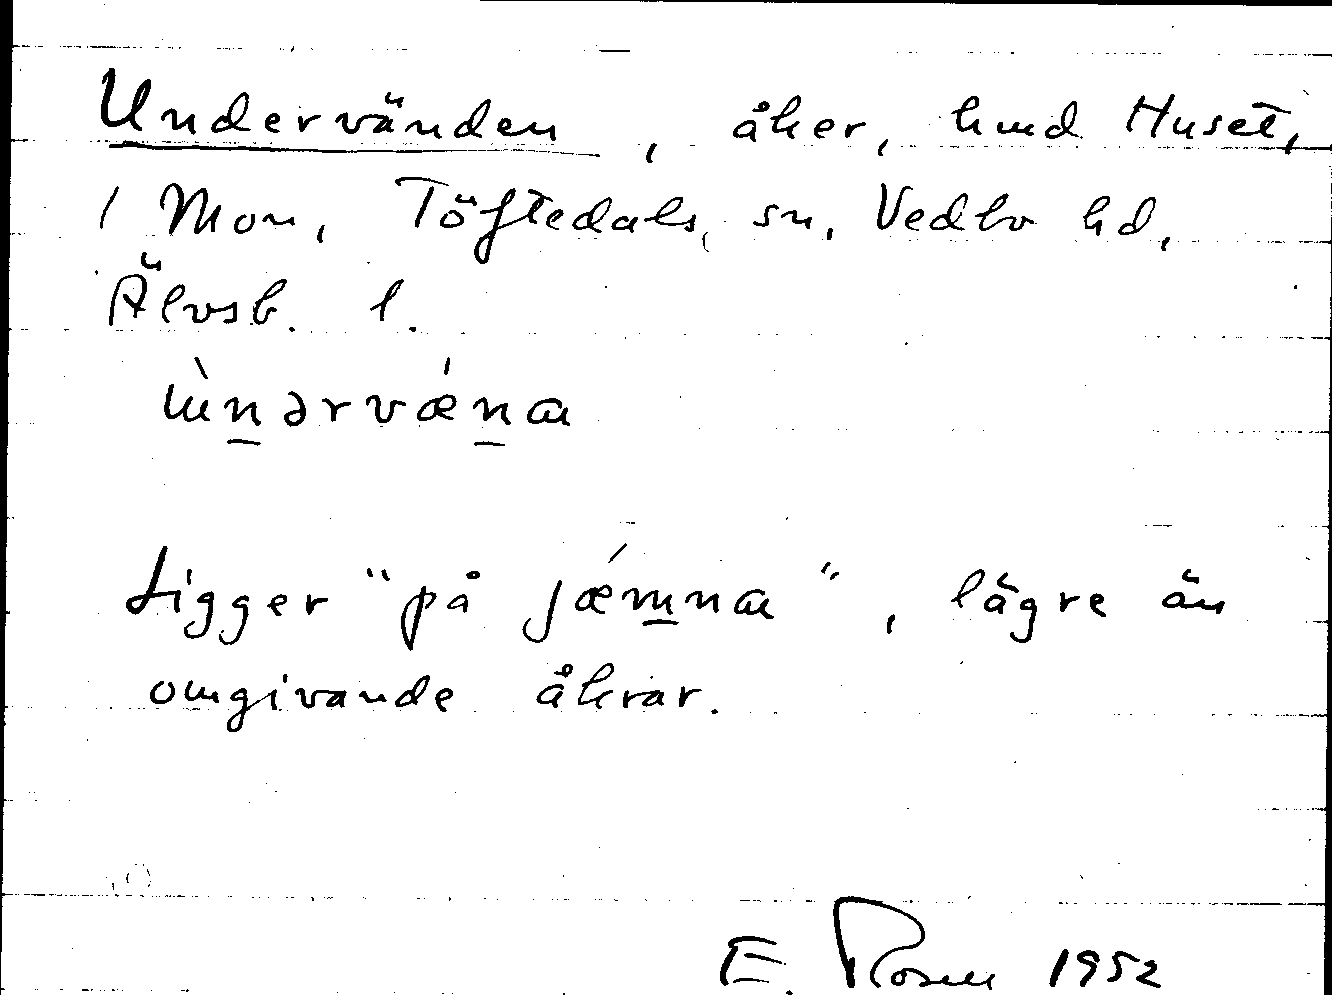 Undervänden, åker, hmd Huset,
1 Mon, Töftedals sn, Vedbo hd,
Älvsb. l.
ɯ̀n̲ərvǽn̲a
Ligger "på jǽm̲na", lägre än
omgivande åkrar.
E. Rosell 1952